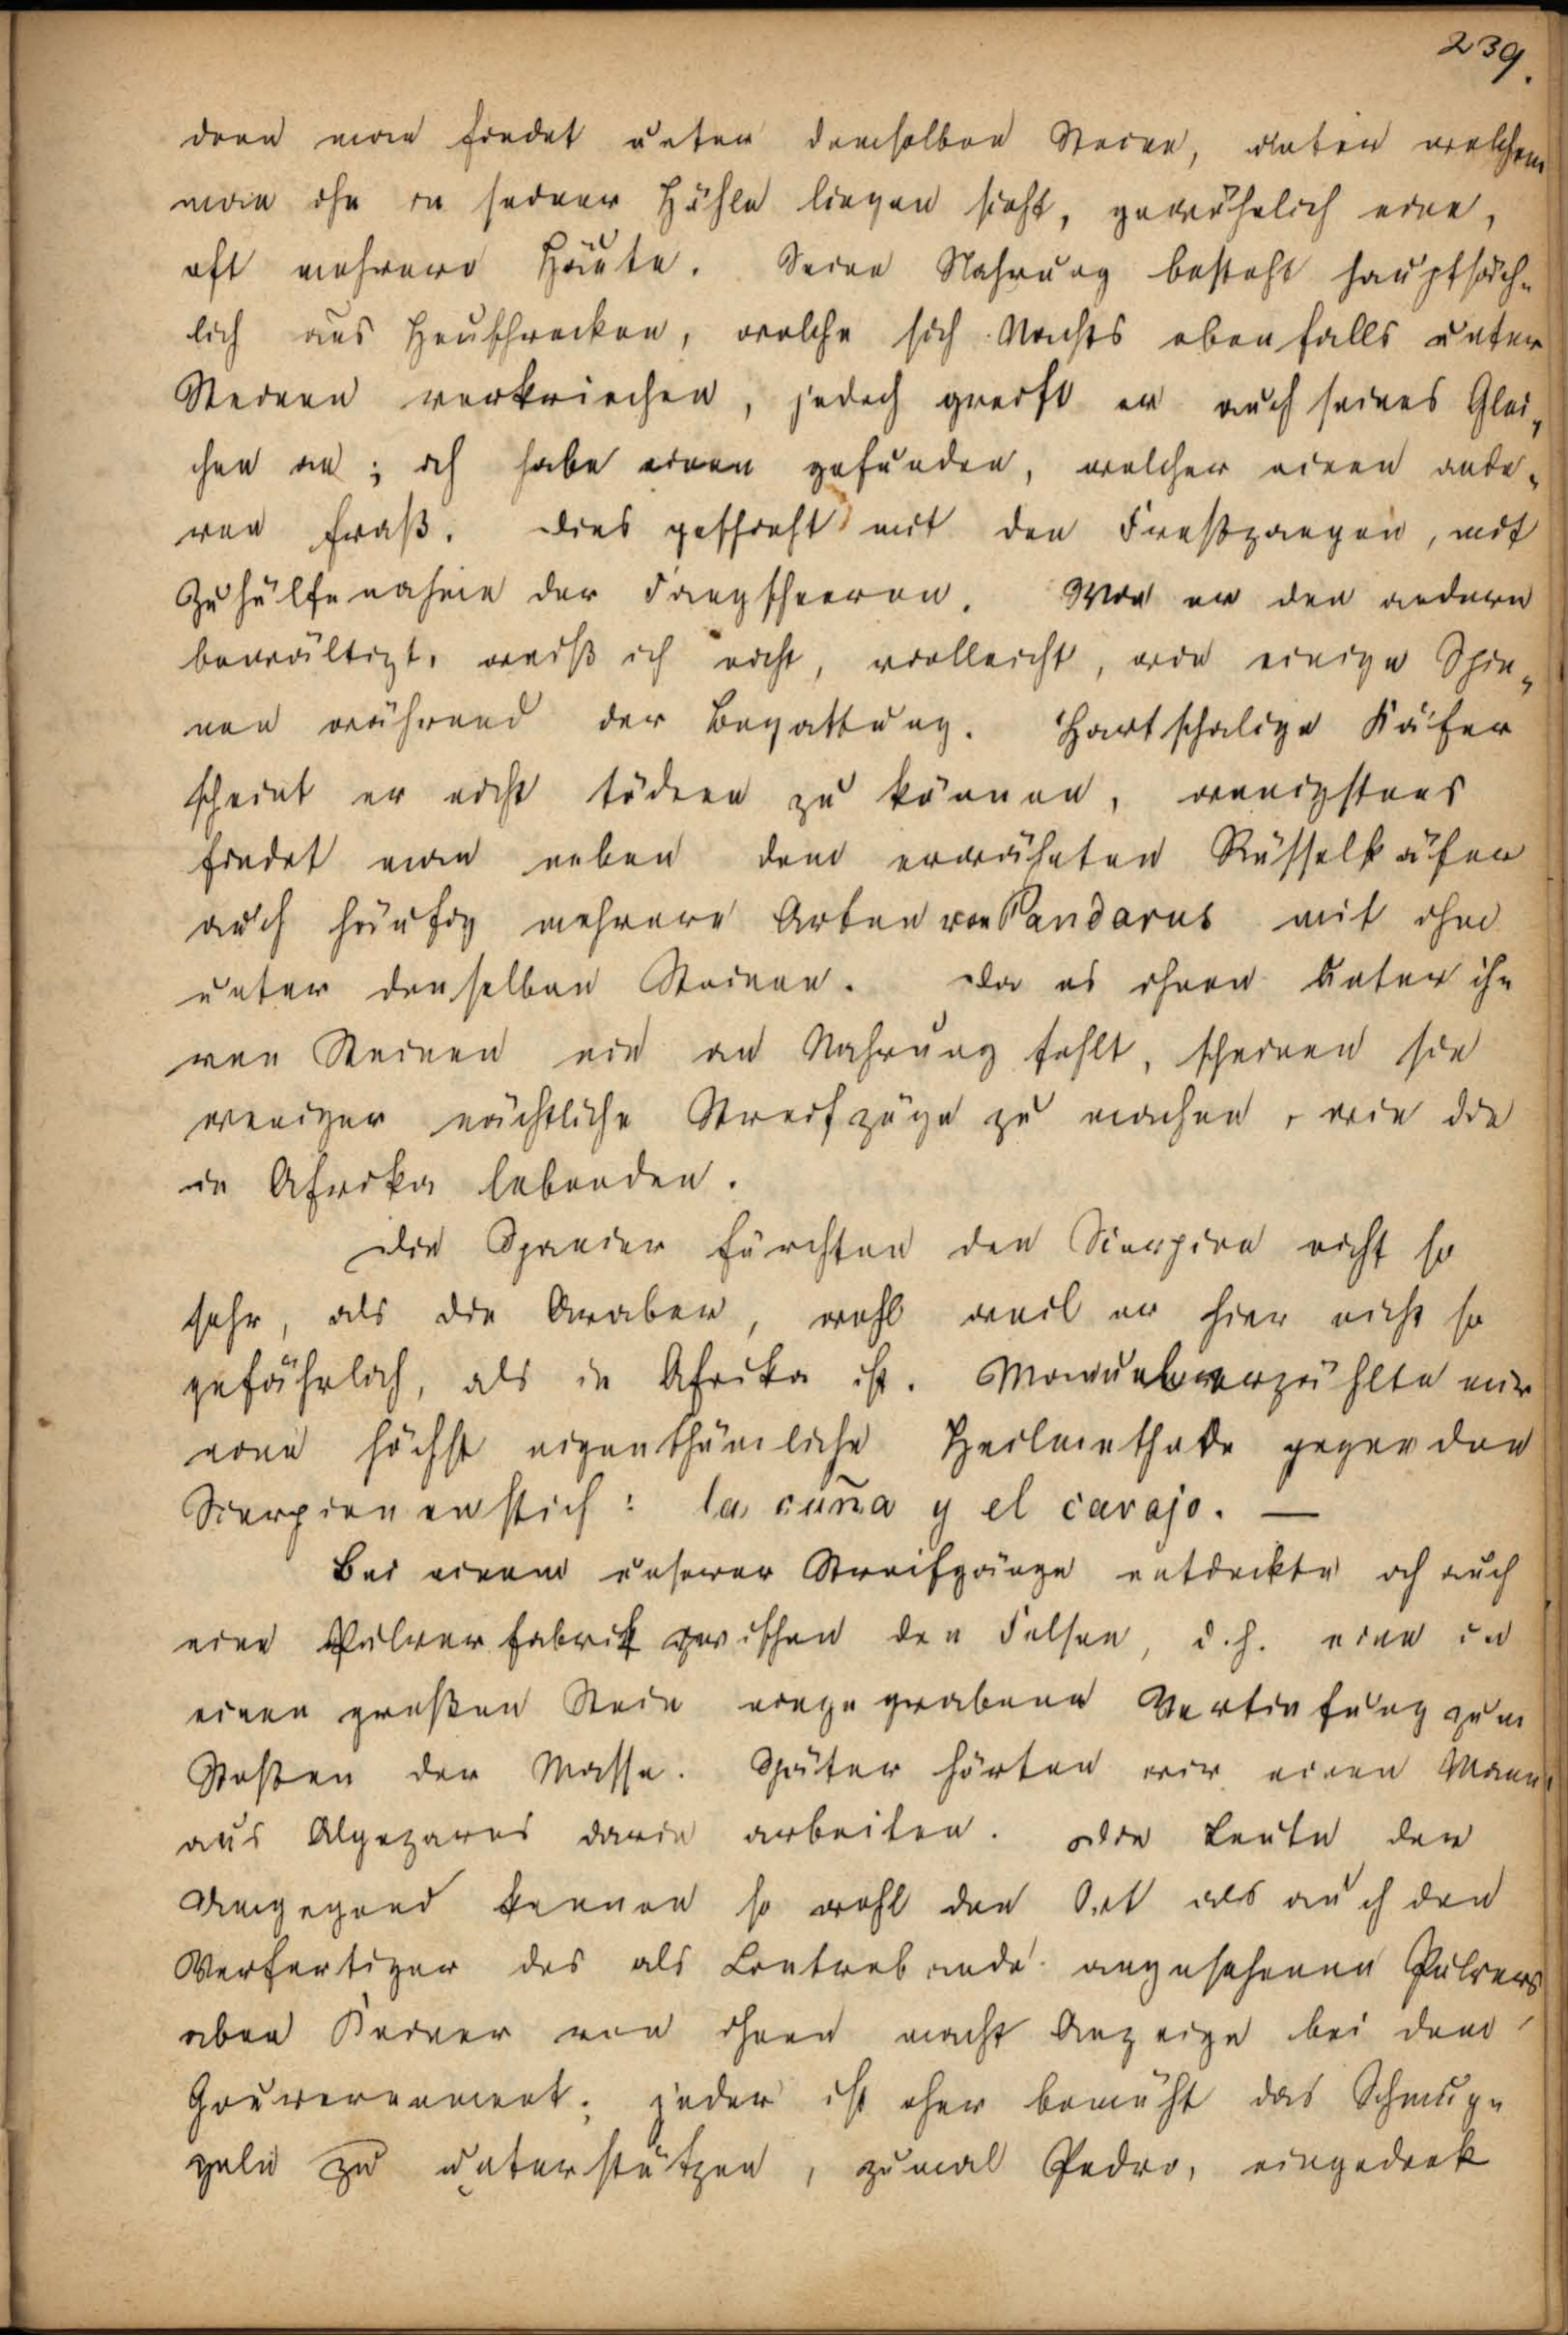 239.
denn man findet unter demselben Steine, unter welchem
man ihn in seiner Höhle liegen sieht, gewöhnlich eine,
oft mehrere Häute. Seine Nahrung besteht hauptsäch-
lich aus Heuschrecken, welche sich Nachts ebenfalls unter
Steinen verkriechen, jedoch greift er auch seines Glei-
chen an; ich habe einen gefunden, welcher einen ande-
ren fraß. Dies geschieht mit den Freßzangen, mit
Zuhülfenahme der Fangscheeren. Wie er den andern
bewältigt, weiß ich nicht, vielleicht, wie einige Spin-
nen während der Begattung. Hartschalige Käfer
scheint er nicht tödten zu können, wenigstens
findet man neben dem erwähnten Rüsselkäfer
auch häufig mehrere Arten von Pandarus mit ihm
unter denselben Steinen. Da es ihnen unter ih-
ren Steinen nie an Nahrung fehlt, scheinen sie
weniger nächtliche Streifzüge zu machen, wie die
in Afrika lebenden.
Die Spanier fürchten den Scorpion nicht so
sehr, als die Araber, wohl weil er hier nicht so
gefährlich, als in Afrika ist. Manuel erzählte mir
eine höchst eigenthümliche Heilmethode gegen den
Scorpionenstich: la cuña y el carajo. —
Bei einem unserer Streifgänge entdeckte ich auch
eine Pulverfabrik zwischen den Felsen, d.h. eine in
einen großen Stein eingegrabene Vertiefung zum
Stoßen der Masse. Später hörten wir einen Mann
aus Algezares darin arbeiten. Die Leute der
Umgegend kennen so wohl den Ort als auch den
Verfertiger des als Contrebande angesehenen Pulvers
aber Keiner von ihnen macht Anzeige bei dem
Gouvernement; jeder ist eher bemüht das Schmug-
geln zu unterstützen, zumal Pedro, eingedenk